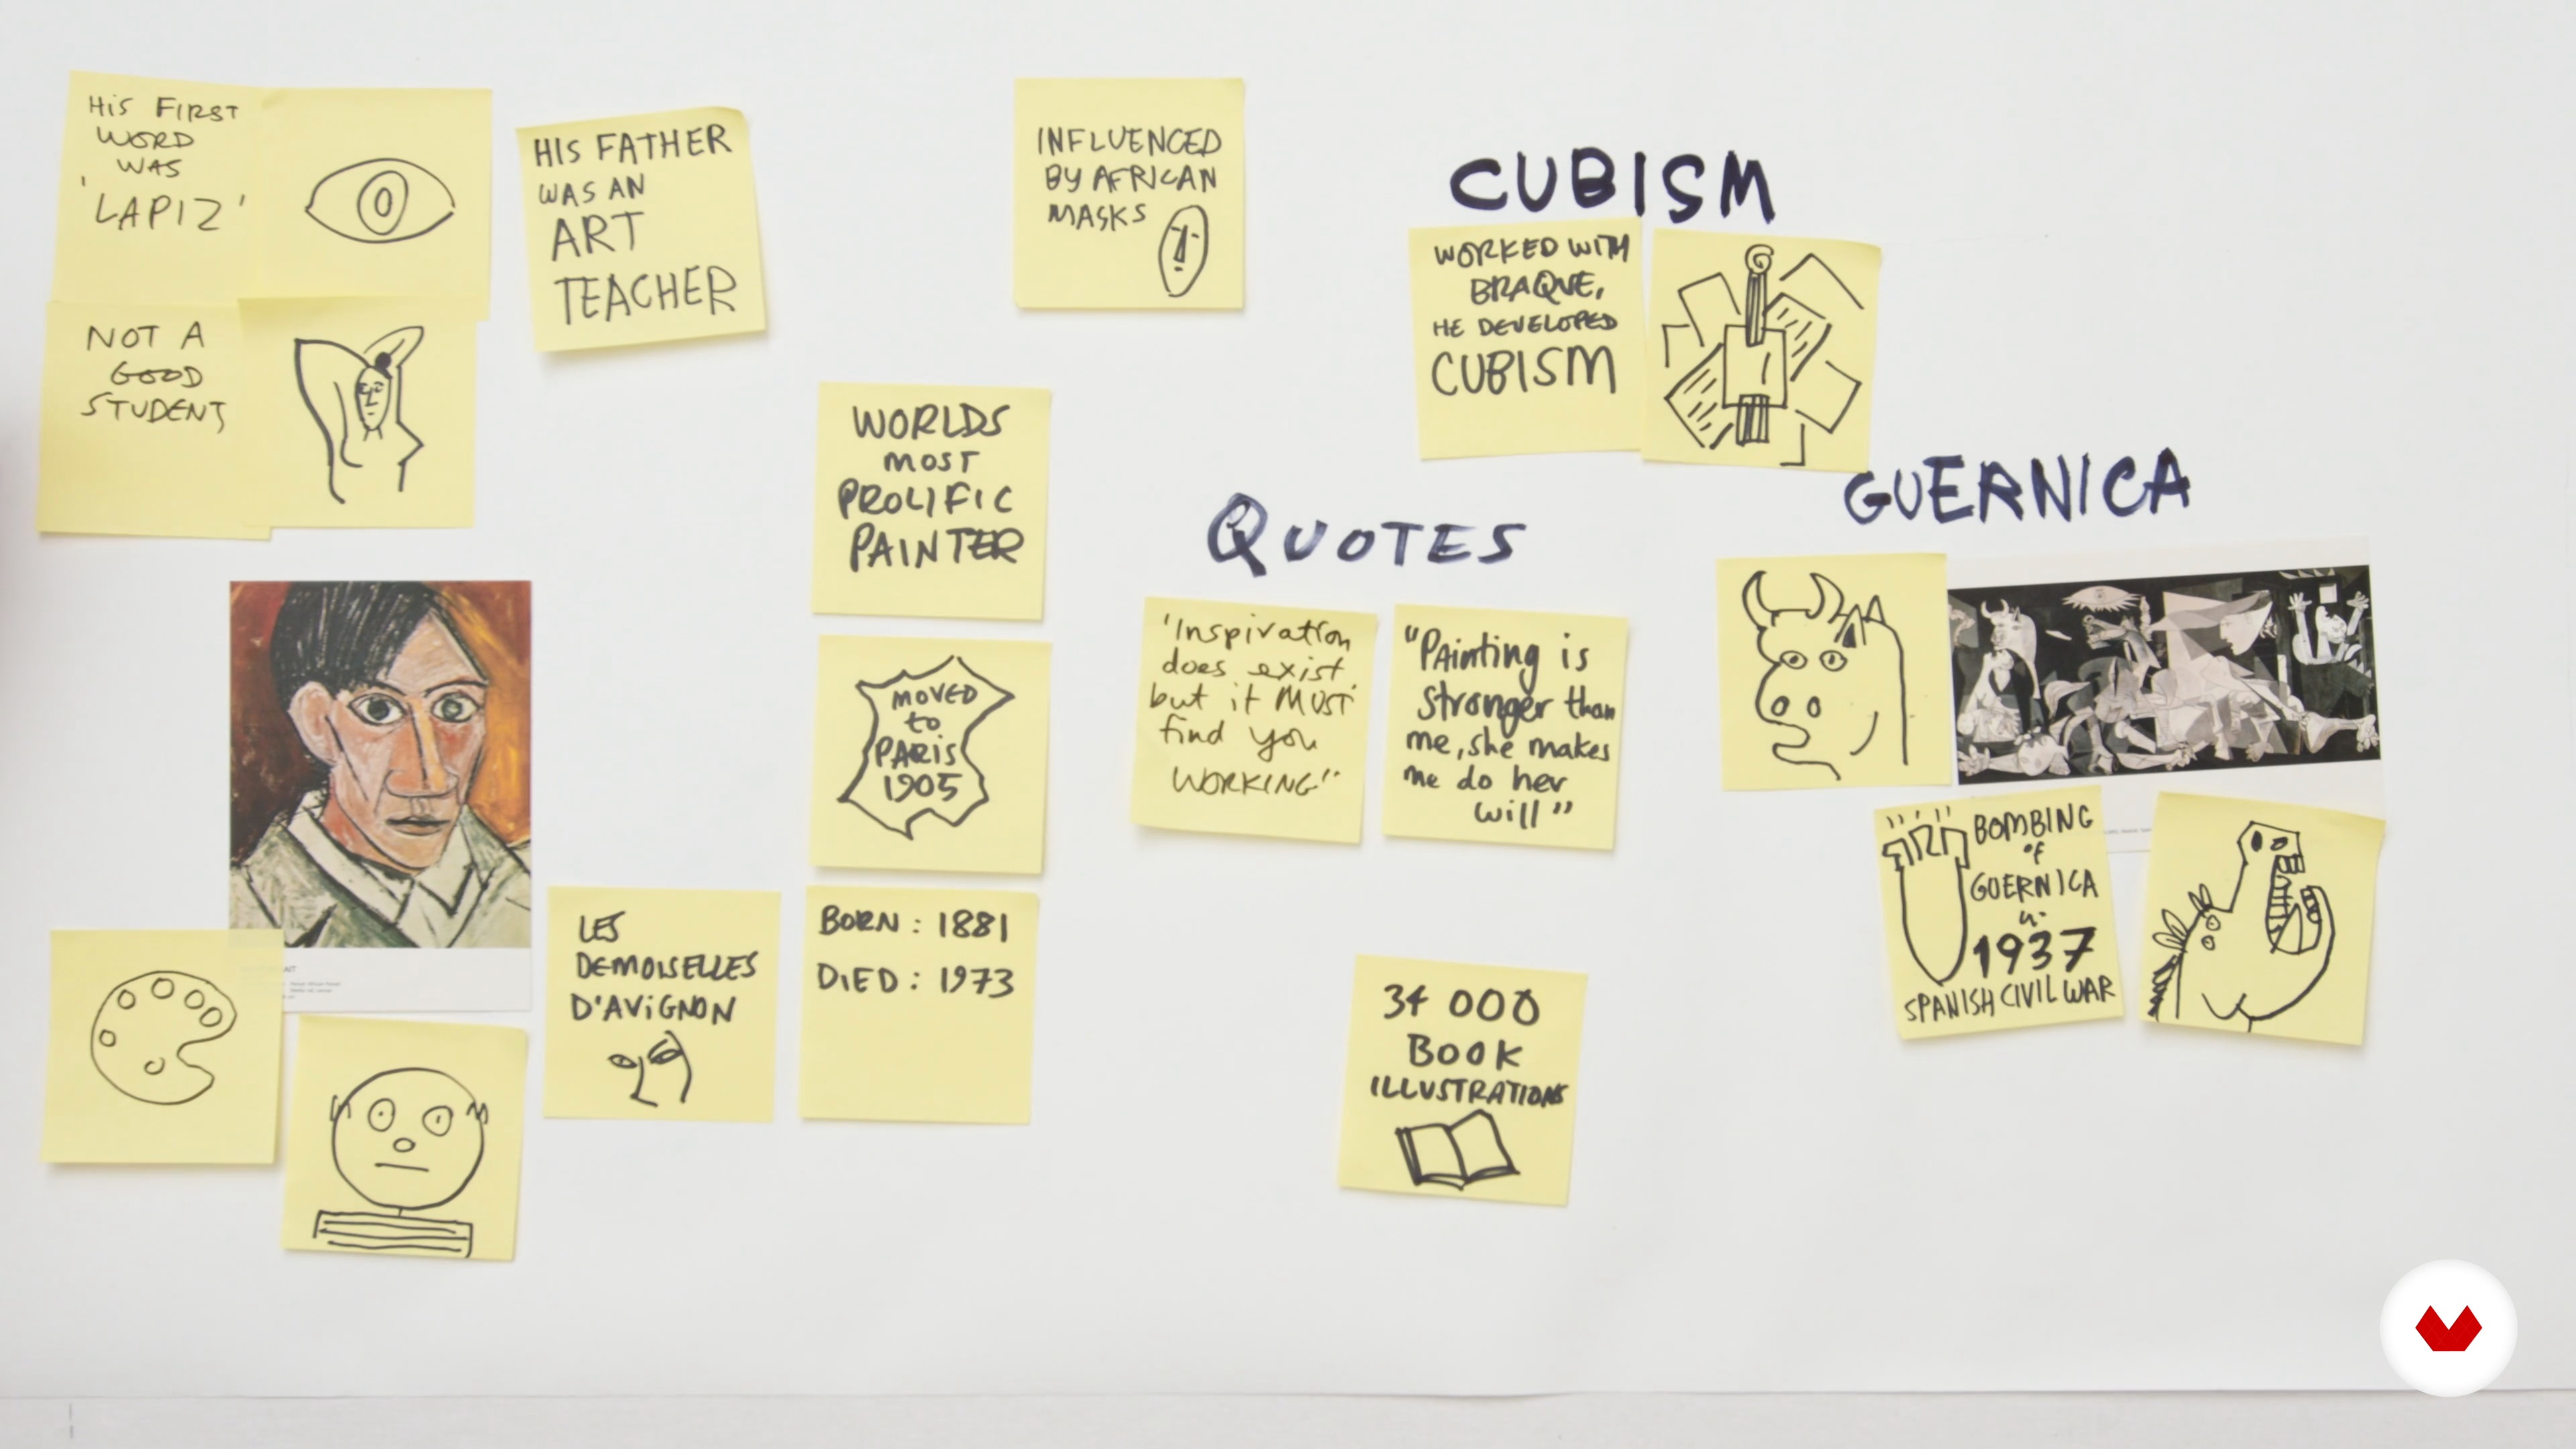 HiS FIRST
WORD
WAS
'LAPIZ'
NOT A
GOOD
STUDENT
HIS FATHER
WAS AN
ART
TEACHER
INFLUENCED
BY AFRICAN
MASKS
WORLDS
MOST
PROLIFIC
PAINTER
MOVED
to
PARIS
1905
LES
DEMOISELLES
D'AViGNON
BORN : 1881
DIED : 1973
CUBISM
WORKED WITH
BRAQUE,
HE DEVELOPED
CUBISM
QUOTES
'Inspiration
does exist
but it MUST
find you
WORKING"
"Painting is
stronger than
me, she makes
me do her
will"
34 000
BOOK
ILLUSTRATIONS
GUERNICA
BOMBING
of
GUERNICA
in
1937
SPANISH CIVIL WAR